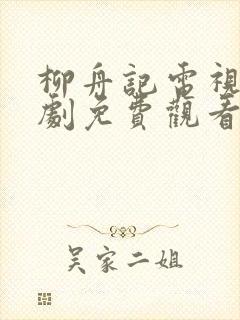 柳舟記電視
劇免費觀看
吳家二姐